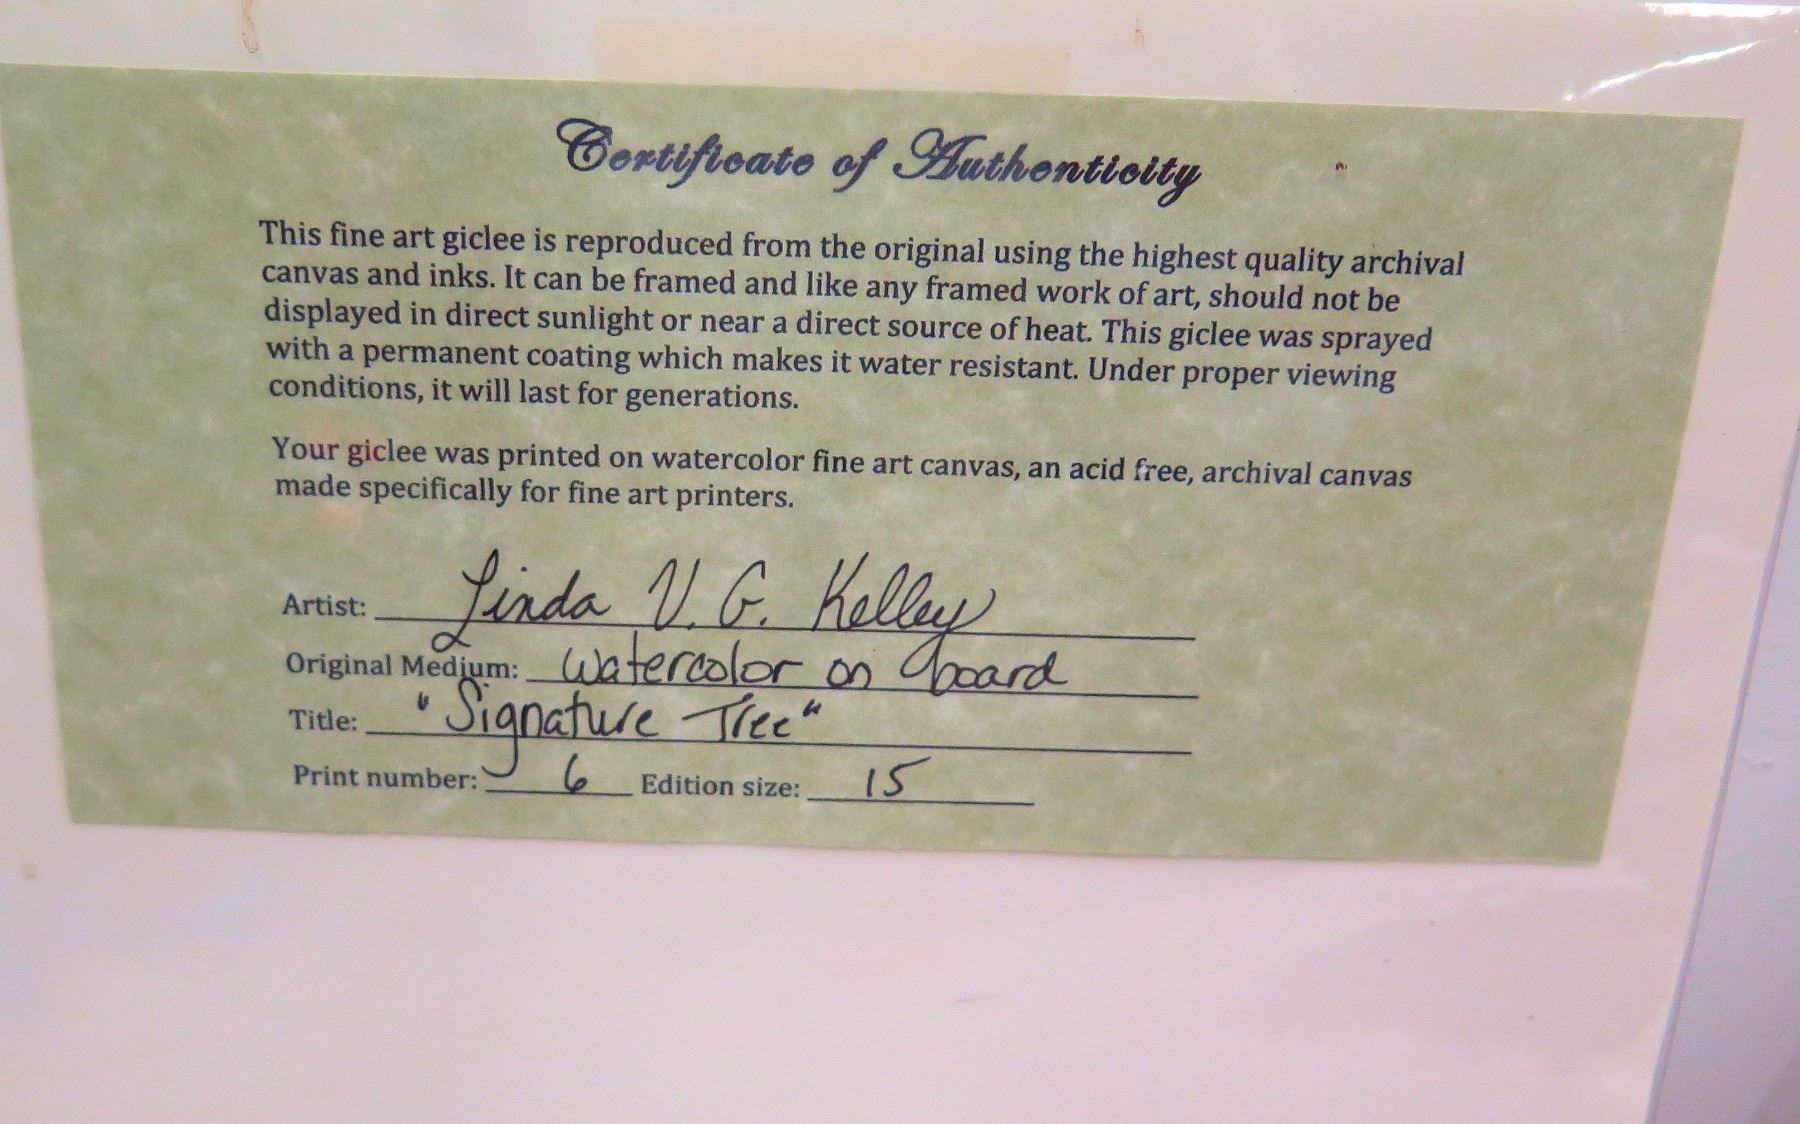 Certificate of Authenticity
This fine art giclee is reproduced from the original using the highest quality archival
canvas and inks. It can be framed and like any framed work of art, should not be
displayed in direct sunlight or near a direct source of heat. This giclee was sprayed
with a permanent coating which makes it water resistant. Under proper viewing
conditions, it will last for generations.
Your giclee was printed on watercolor fine art canvas, an acid free, archival canvas
made specifically for fine art printers.
Artist: Linda V. G. Kelley
Original Medium: Watercolor on board
Title: "Signature Tree"
Print number: 6 Edition size: 15